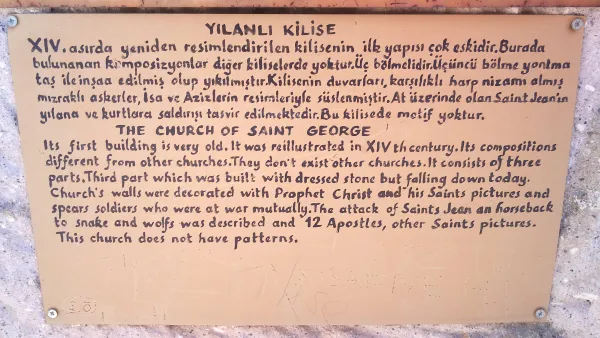 YILANLI KİLİSE
XIV. asırda yeniden resimlendirilen kilisenin ilk yapısı çok eskidir. Burada
bulunanan kompozisyonlar diğer kiliselerde yoktur. Üç bölmelidir. Üçüncü bölme yontma
taş ile inşaa edilmiş olup yıkılmıştır. Kilisenin duvarları, karşılıklı harp nizamı almış
mızraklı askerler, İsa ve Azizlerin resimleriyle süslenmiştir. At üzerinde olan Saint Jean'ın
yılana ve kurtlara saldırışı tasvir edilmektedir. Bu kilisede motif yoktur.
THE CHURCH OF SAINT GEORGE
Its first building is very old. It was reillustrated in XIV th century. Its compositions
different from other churches. They don't exist other churches. It consists of three
parts. Third part which was built with dressed stone but falling down today.
Church's walls were decorated with Prophet Christ and his Saints pictures and
spears soldiers who were at war mutually. The attack of Saints Jean an horseback
to snake and wolfs was described and 12 Apostles, other Saints pictures.
This church does not have patterns.